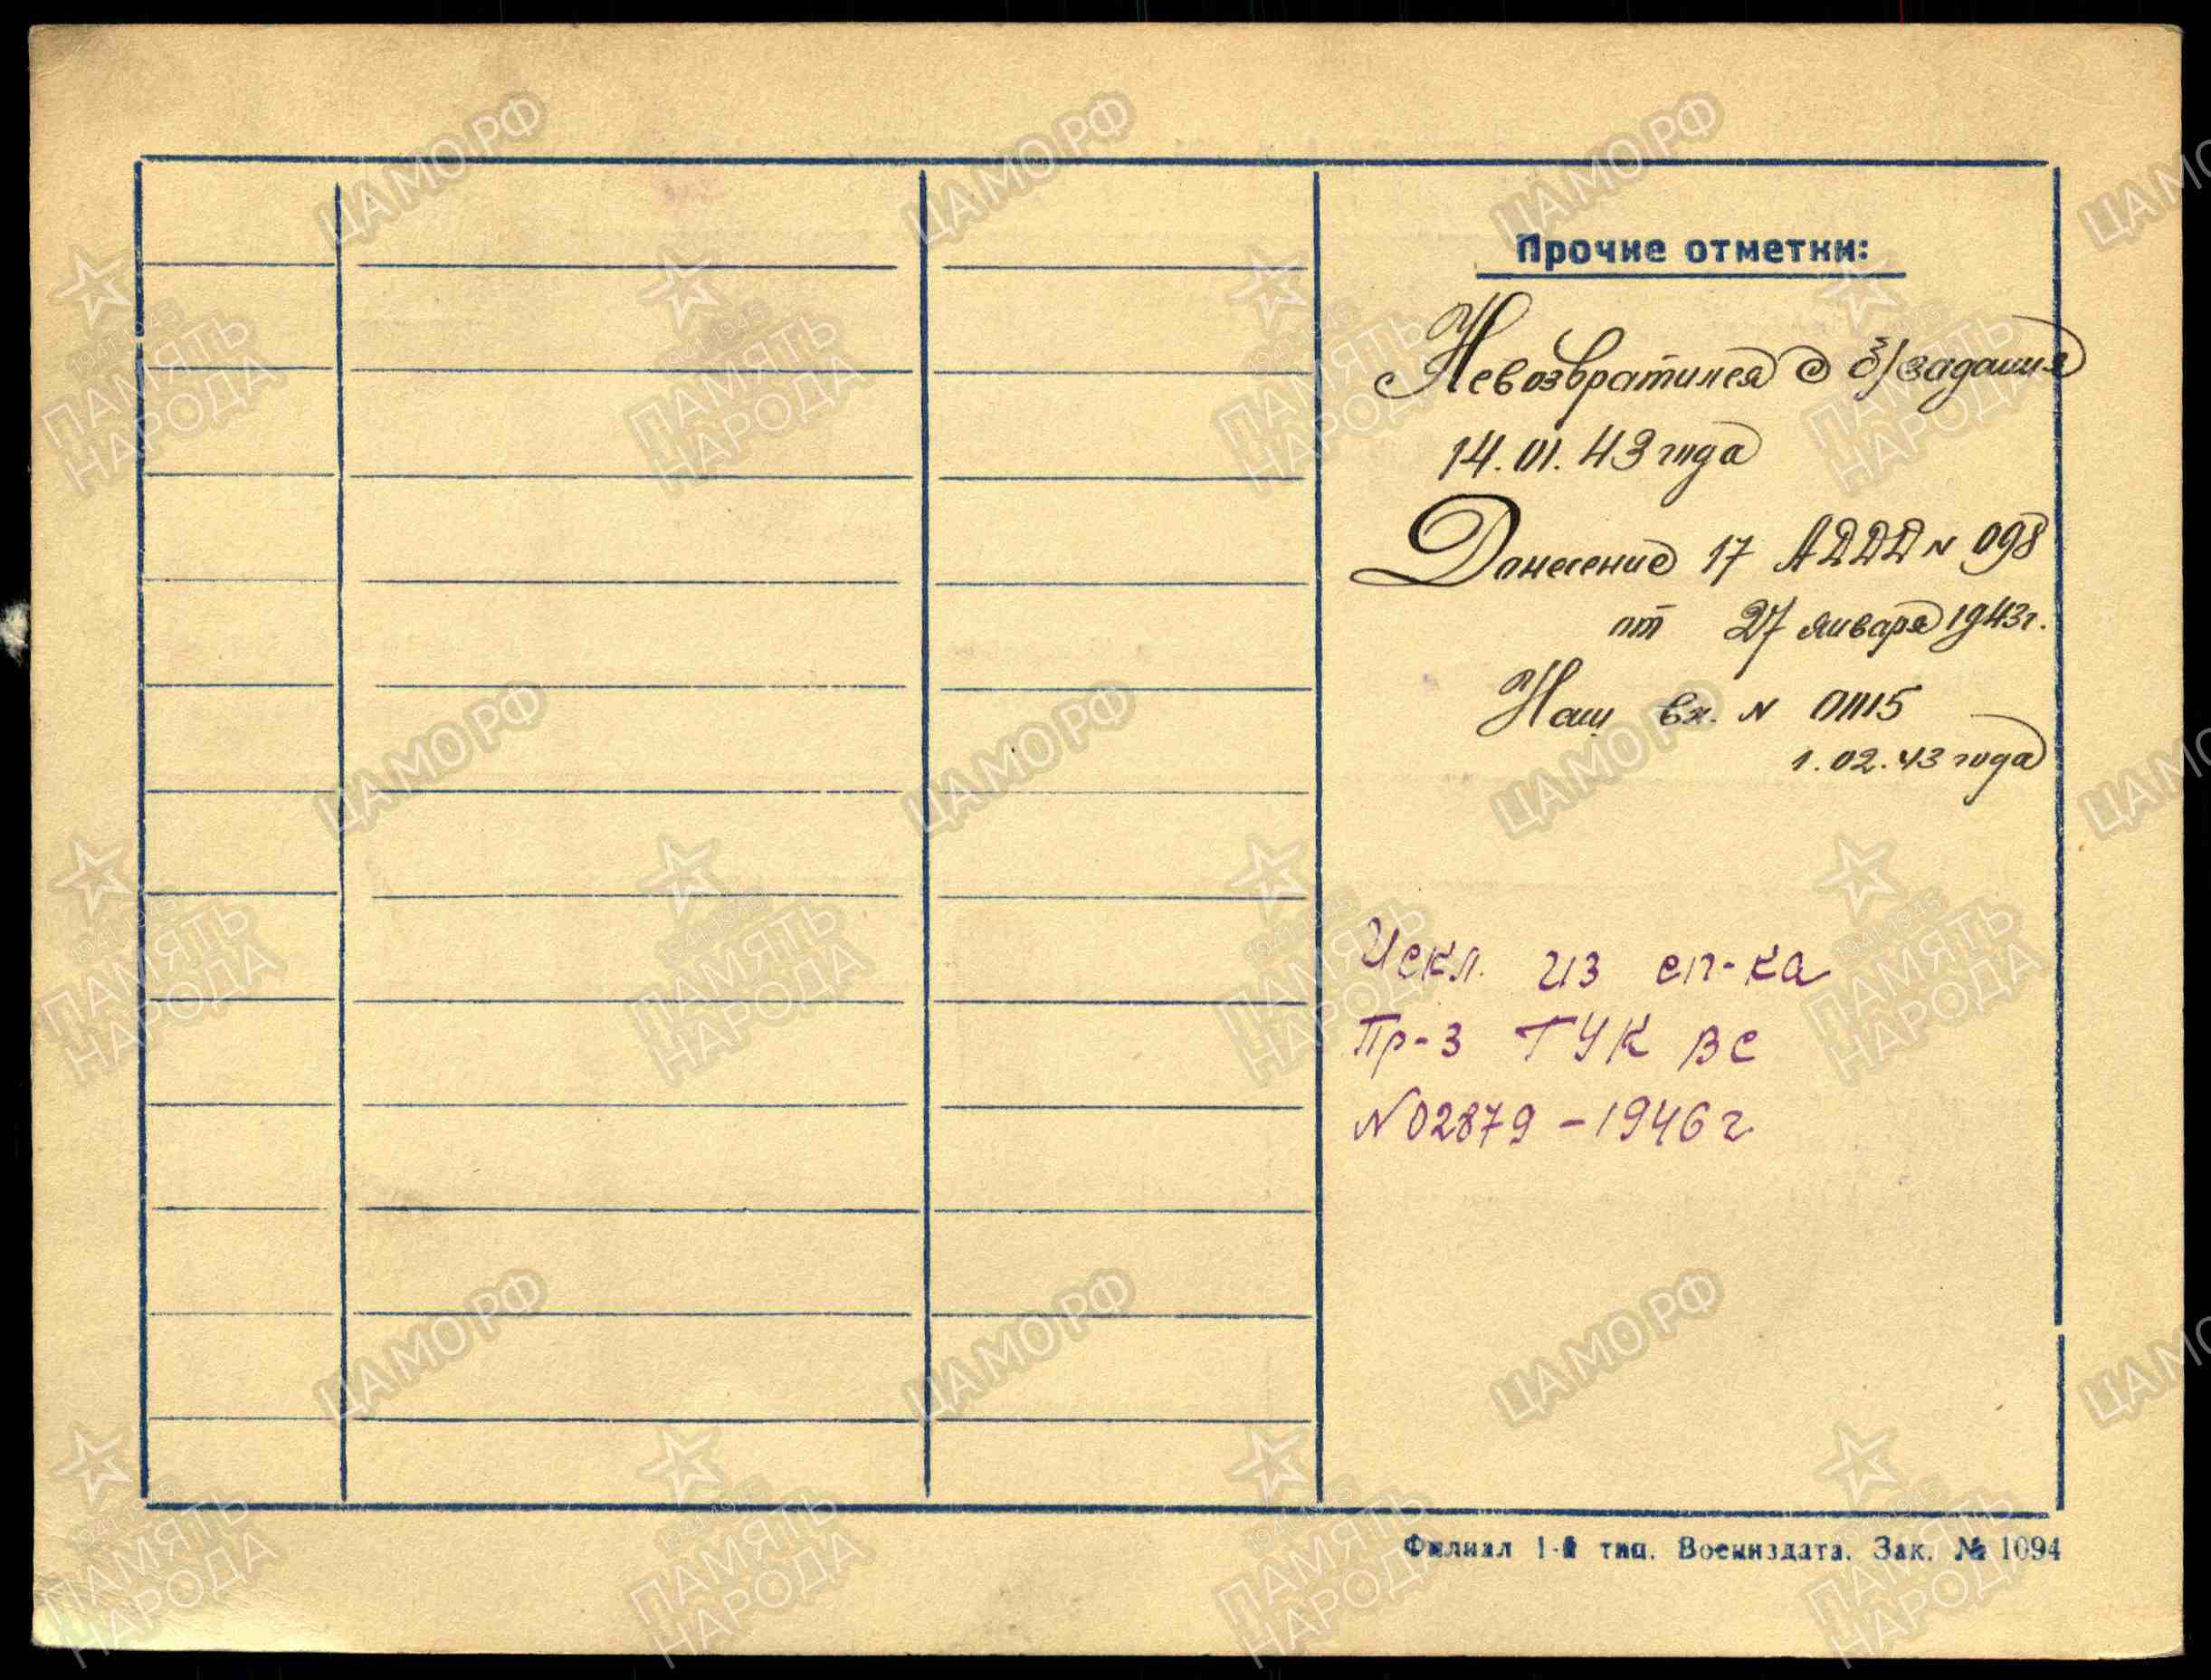 Прочие отметки:
Невозвратился с б/задания
14.01.43 года
Донесение 17 АДДД N 098
от 27 января 1943г.
Наш вх. N 01115
1.02.43 года
Искл. из сп-ка
Пр-з ГУК ВС
N02879-1946г
Филиал 1-й тип. Воениздата. Зак. № 1094
ЦАМО.РФ
1941-1945
ПАМЯТЬ
НАРОДА